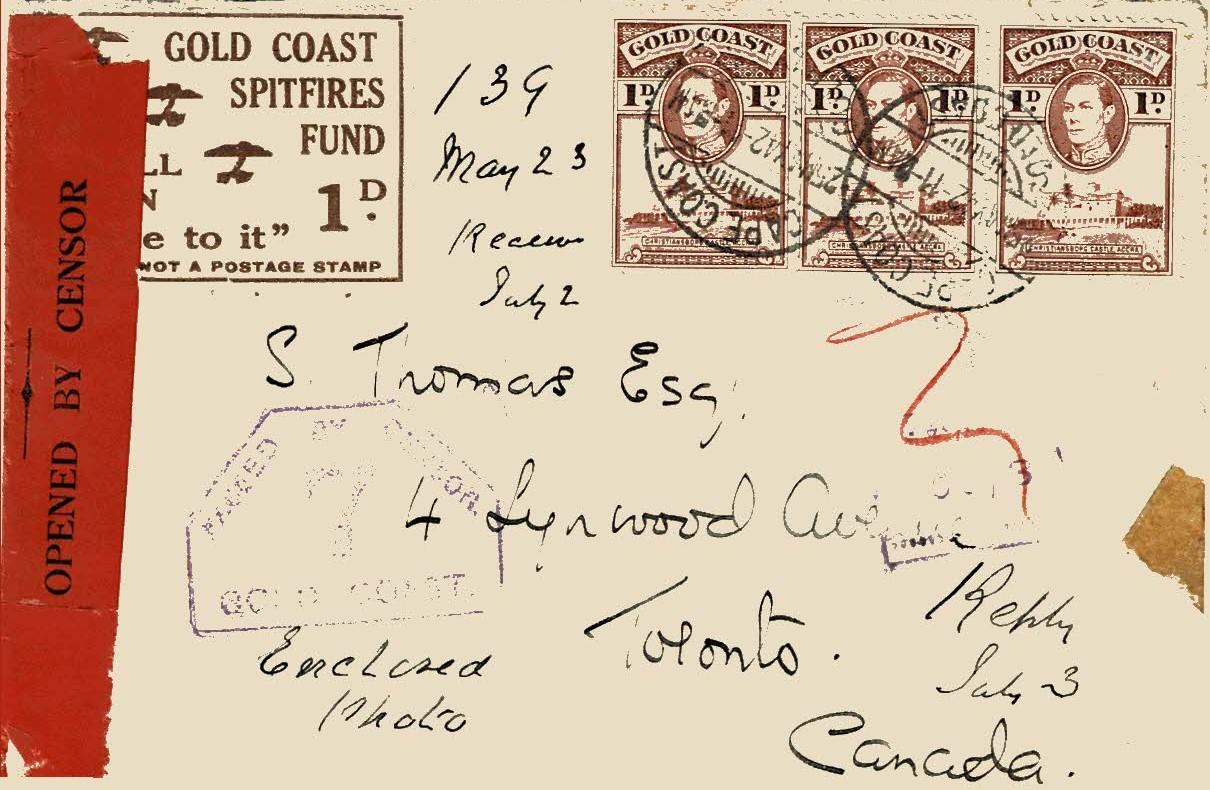 GOLD COAST
SPITFIRES
FUND
LL
N
1D.
e to it”
NOT A POSTAGE STAMP
OPENED BY CENSOR
139
May 23
Receive
July 2
GOLD COAST
1D. 1D.
CHRISTIANSBORG CASTLE ACCRA
GOLD COAST
1D. 1D.
CHRISTIANSBORG CASTLE ACCRA
GOLD COAST
1D. 1D.
CHRISTIANSBORG CASTLE ACCRA
CAPE COAST
CAPE COAST
S. Thomas Esq.
4 Lynwood Ave
Toronto.
Canada.
PASSED BY CENSOR.
7
GOLD COAST.
Enclosed
Photo
Reply
July 3